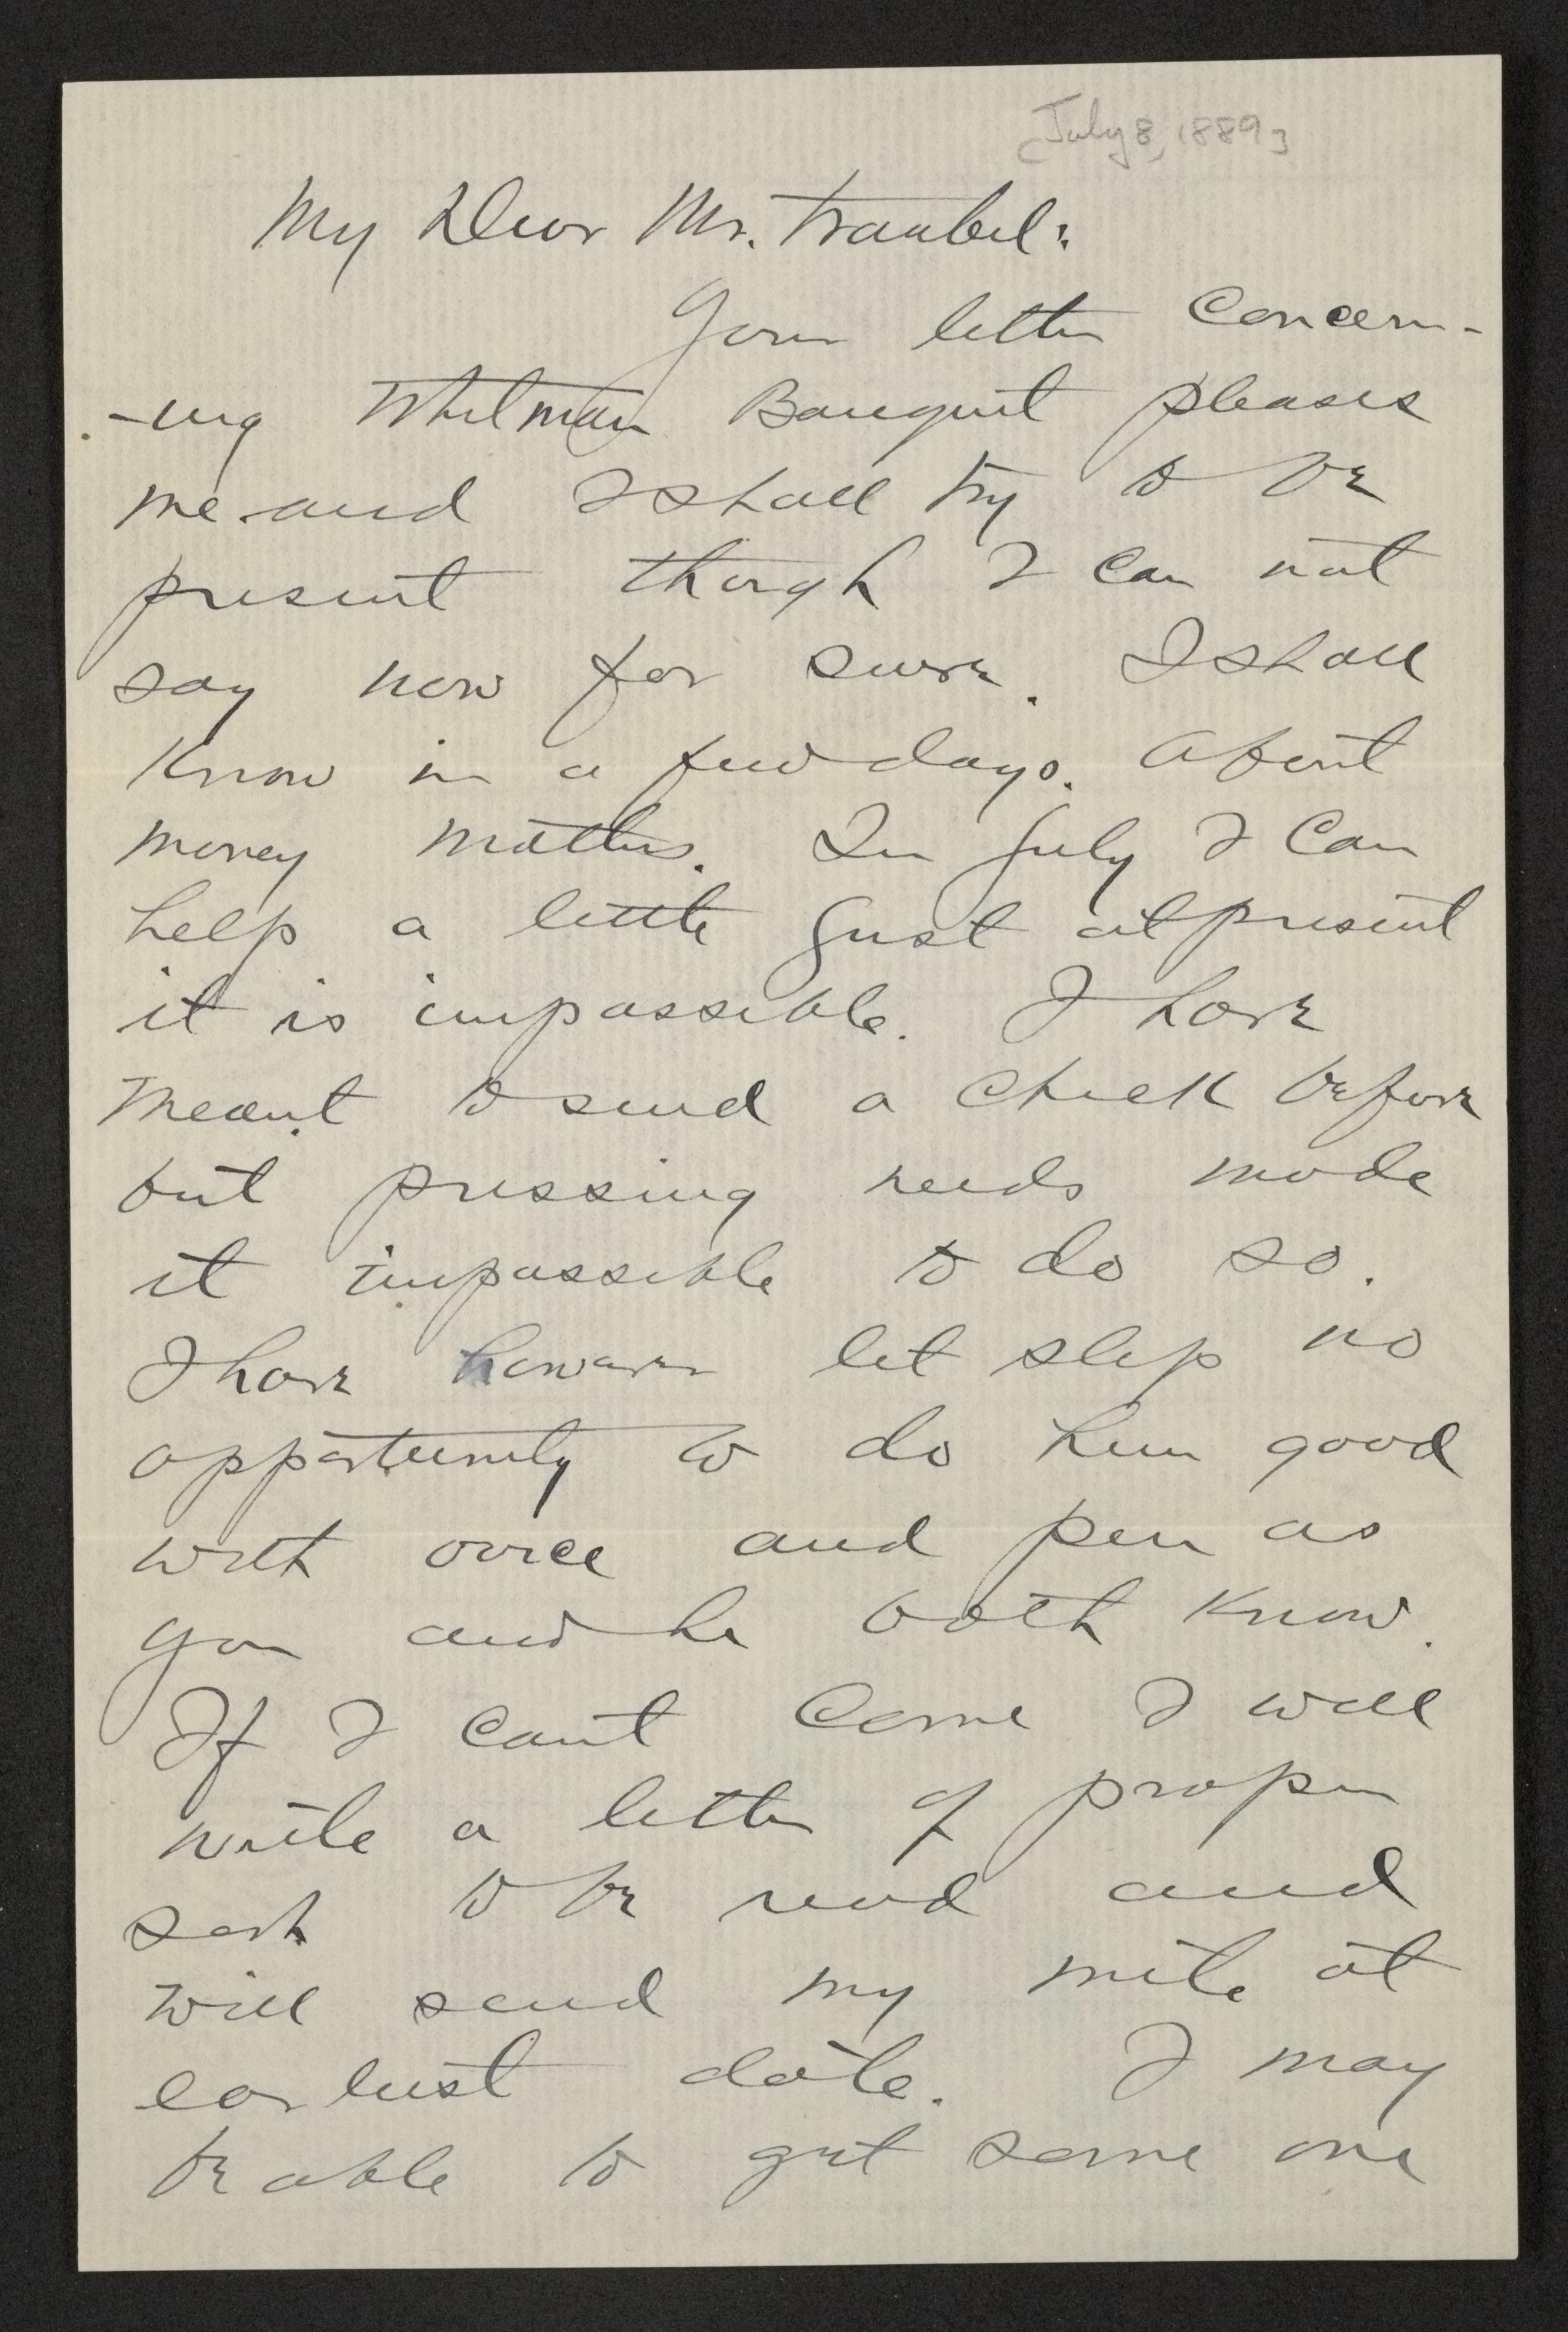 [July 8, 1889]
My Dear Mr. Traubel:
Your letter concern-
-ing Whitman Banquet pleases
me and I shall try to be
present though I can not
say now for sure. I shall
Know in a few days. About
money matters. In July I can
help a little Just at present
it is impossible. I have
meant to send a check before
but pressing needs made
it impossible to do so.
I have however let slip no
opportunity to do him good
with voice and pen as
you and he both Know.
If I can't come I will
write a letter of proper
sort to be read and
will send my mite at
earliest date. I may
be able to get some one